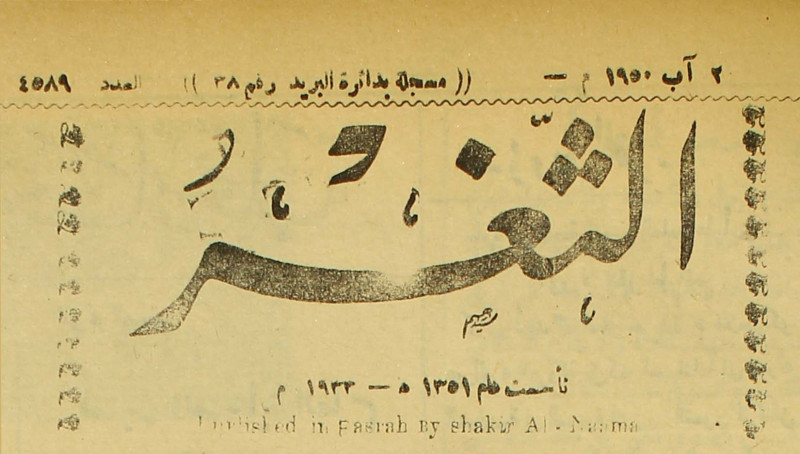 ٢ آب ١٩٥٠ م — (( مسجلة بدائرة البريد رقم ٣٨ )) العدد ٤٥٨٩
الثَّغْرُ
تأسست عام ١٣٥١ هـ — ١٩٣٣ م
Published in Basrah By Shakir Al-Naama